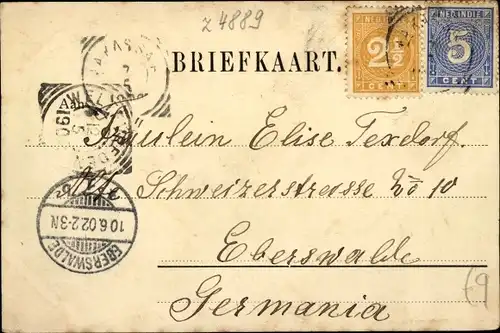 z 4889
BRIEFKAART.
NED-INDIE
2½
CENT
NED-INDIE
5
CENT
Aan
Fräulein Elise Texdorf.
Schweizerstrasse No 10
Eberswalde
Germania
EBERSWALDE
10.6.02.2-3N